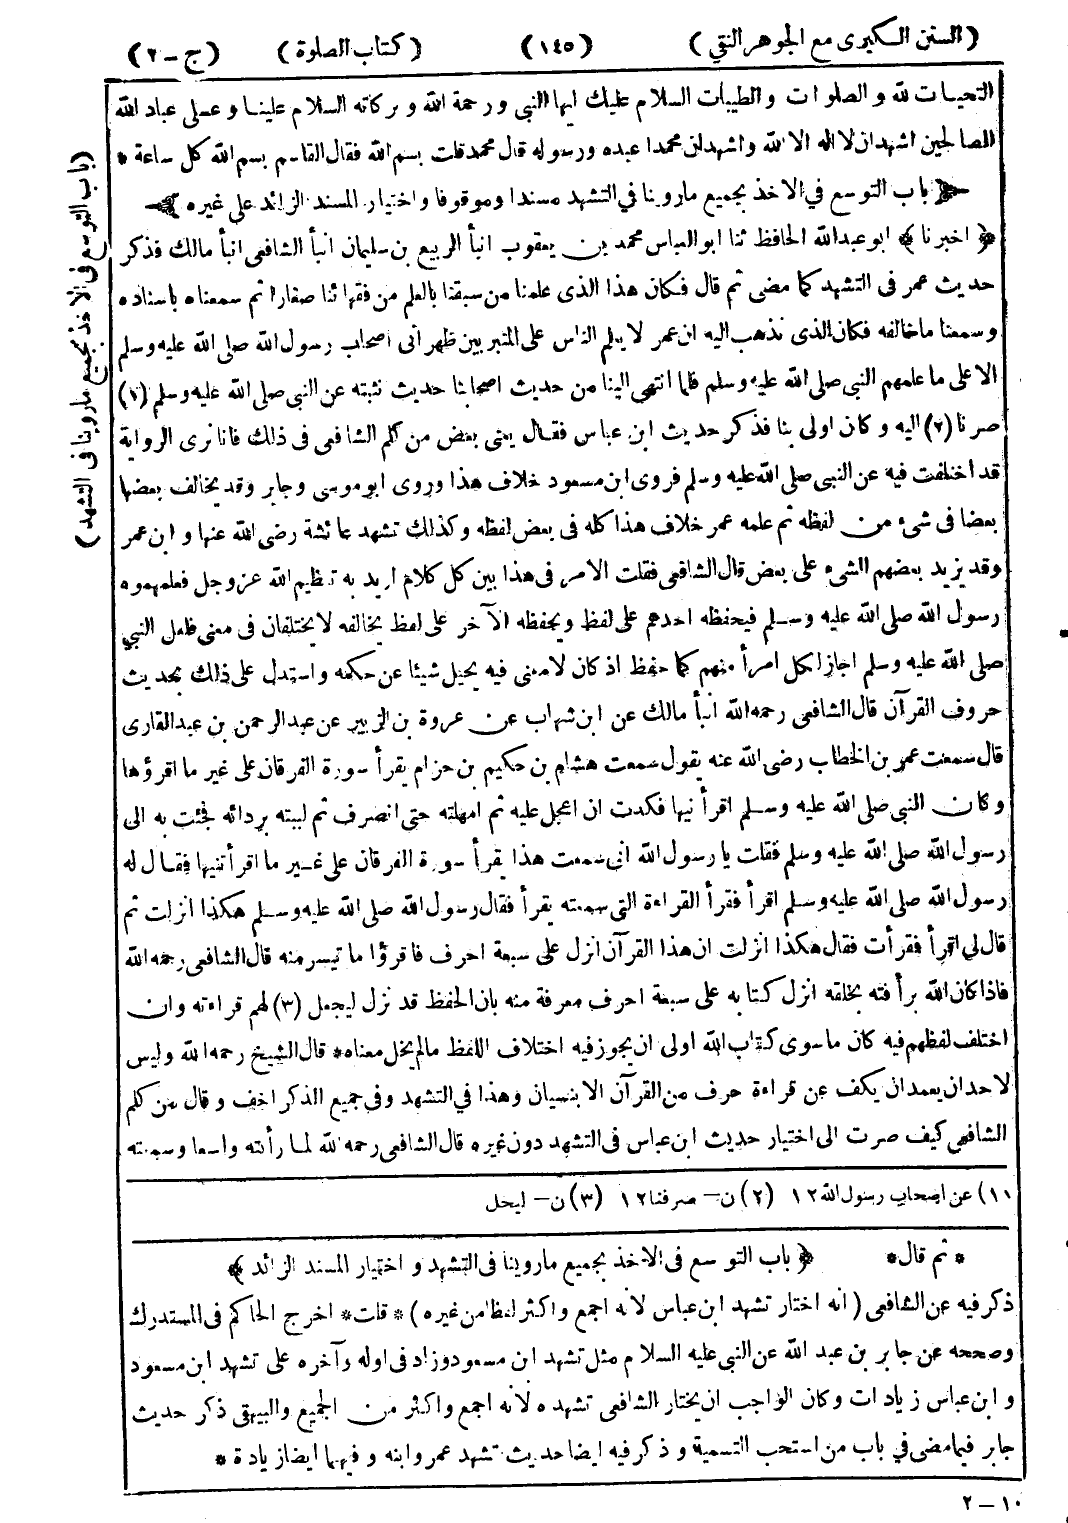 (السنن الكبرى مع الجوهر النقي) (١٤٥) (كتاب الصلوة) (ج - ٢)
التحيات لله والصلوات والطيبات السلام عليك ايها النبي ورحمة الله وبركاته السلام علينا وعلى عباد الله
الصالحين اشهد ان لا اله الا الله واشهد ان محمدا عبده ورسوله قال محمد قلت بسم الله فقال القاسم بسم الله كل ساعة *
﴿ باب التوسع في الاخذ بجميع ما روينا في التشهد مسندا وموقوفا واختيار المسند الزائد على غيره ﴾
﴿ اخبرنا ﴾ ابو عبدالله الحافظ ثنا ابو العباس محمد بن يعقوب انبأ الربيع بن سليمان انبأ الشافعي انبأ مالك فذكر
حديث عمر في التشهد كما مضى ثم قال فكان هذا الذى علمنا من سبقنا بالعلم من فقهائنا صغارا ثم سمعناه باسناده
وسمعنا ما خالفه فكان الذى نذهب اليه ان عمر لا يعلم الناس على المنبر بين ظهرانى اصحاب رسول الله صلى الله عليه وسلم
الا على ما علمهم النبي صلى الله عليه وسلم فلما انتهى الينا من حديث اصحابنا حديث نثبته عن النبي صلى الله عليه وسلم (١)
صرنا (٢) اليه وكان اولى بنا فذكر حديث ابن عباس فقال يعنى بعض من كلم الشافعى فى ذلك فانا نرى الرواية
قد اختلفت فيه عن النبي صلى الله عليه وسلم فروى ابن مسعود خلاف هذا وروى ابو موسى وجابر وقد يخالف بعضها
بعضا فى شىء من لفظه ثم علمه عمر خلاف هذا كله فى بعض لفظه وكذلك تشهد عائشة رضى الله عنها وابن عمر
وقد يزيد بعضهم الشىء على بعض قال الشافعى فقلت الامر فى هذا بين كل كلام اريد به تعظيم الله عز وجل فعلمهموه
رسول الله صلى الله عليه وسلم فيحفظه احدهم على لفظ ويحفظه الآخر على لفظ يخالفه لا يختلفان فى معنى فلعل النبي
صلى الله عليه وسلم اجاز لكل امرأ منهم كما حفظ اذ كان لا معنى فيه يحيل شيئا عن حكمه واستدل على ذلك بحديث
حروف القرآن قال الشافعى رحمه الله انبأ مالك عن ابن شهاب عن عروة بن الزبير عن عبد الرحمن بن عبد القارى
قال سمعت عمر بن الخطاب رضى الله عنه يقول سمعت هشام بن حكيم بن حزام يقرأ سورة الفرقان على غير ما اقرؤها
وكان النبي صلى الله عليه وسلم اقرأنيها فكدت ان اعجل عليه ثم امهلته حتى انصرف ثم لببته بردائه فجئت به الى
رسول الله صلى الله عليه وسلم فقلت يا رسول الله انى سمعت هذا يقرأ سورة الفرقان على غير ما اقرأتنيها فقال له
رسول الله صلى الله عليه وسلم اقرأ فقرأ القراءة التى سمعته يقرأ فقال رسول الله صلى الله عليه وسلم هكذا انزلت ثم
قال لى اقرأ فقرأت فقال هكذا انزلت ان هذا القرآن انزل على سبعة احرف فاقرؤا ما تيسر منه قال الشافعى رحمه الله
فاذا كان الله برأفته بخلقه انزل كتابه على سبعة احرف معرفة منه بان الحفظ قد نزل ليجعل (٣) لهم قراءته وان
اختلف لفظهم فيه كان ما سوى كتاب الله اولى ان يجوز فيه اختلاف اللفظ ما لم يخل معناه * قال الشيخ رحمه الله وليس
لاحد ان يعمد ان يكف عن قراءة حرف من القرآن الا بنسيان وهذا فى التشهد وفى جميع الذكر اخف وقال من كلم
الشافعى كيف صرت الى اختيار حديث ابن عباس فى التشهد دون غيره قال الشافعى رحمه الله لما رأيته واسعا وسمعته
(باب التوسع فى الاخذ بجميع ما روينا فى التشهد)
(١) عن اصحاب رسول الله ١٢ (٢) ن - صرفنا ١٢ (٣) ن - ليحل
* ثم قال * ﴿ باب التوسع فى الاخذ بجميع ما روينا فى التشهد واختيار المسند الزائد ﴾
ذكر فيه عن الشافعى (انه اختار تشهد ابن عباس لانه اجمع واكثر لفظا من غيره) * قلت * اخرج الحاكم فى المستدرك
وصححه عن جابر بن عبد الله عن النبي عليه السلام مثل تشهد ابن مسعود وزاد فى اوله وآخره على تشهد ابن مسعود
وابن عباس زيادات وكان الواجب ان يختار الشافعى تشهده لانه اجمع واكثر من الجميع والبيهقى ذكر حديث
جابر فيما مضى فى باب من استحب التسمية وذكر فيه ايضا حديث تشهد عمر وابنه وفيهما ايضا زيادة *
١٠ - ٢